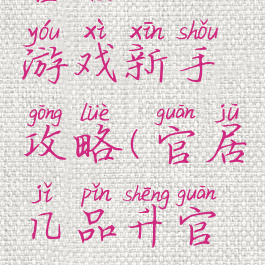 yóu xì xīn shǒu
游戏新手
gōng lüè guān jū
攻略(官居
jǐ pǐn shēng guān
几品升官